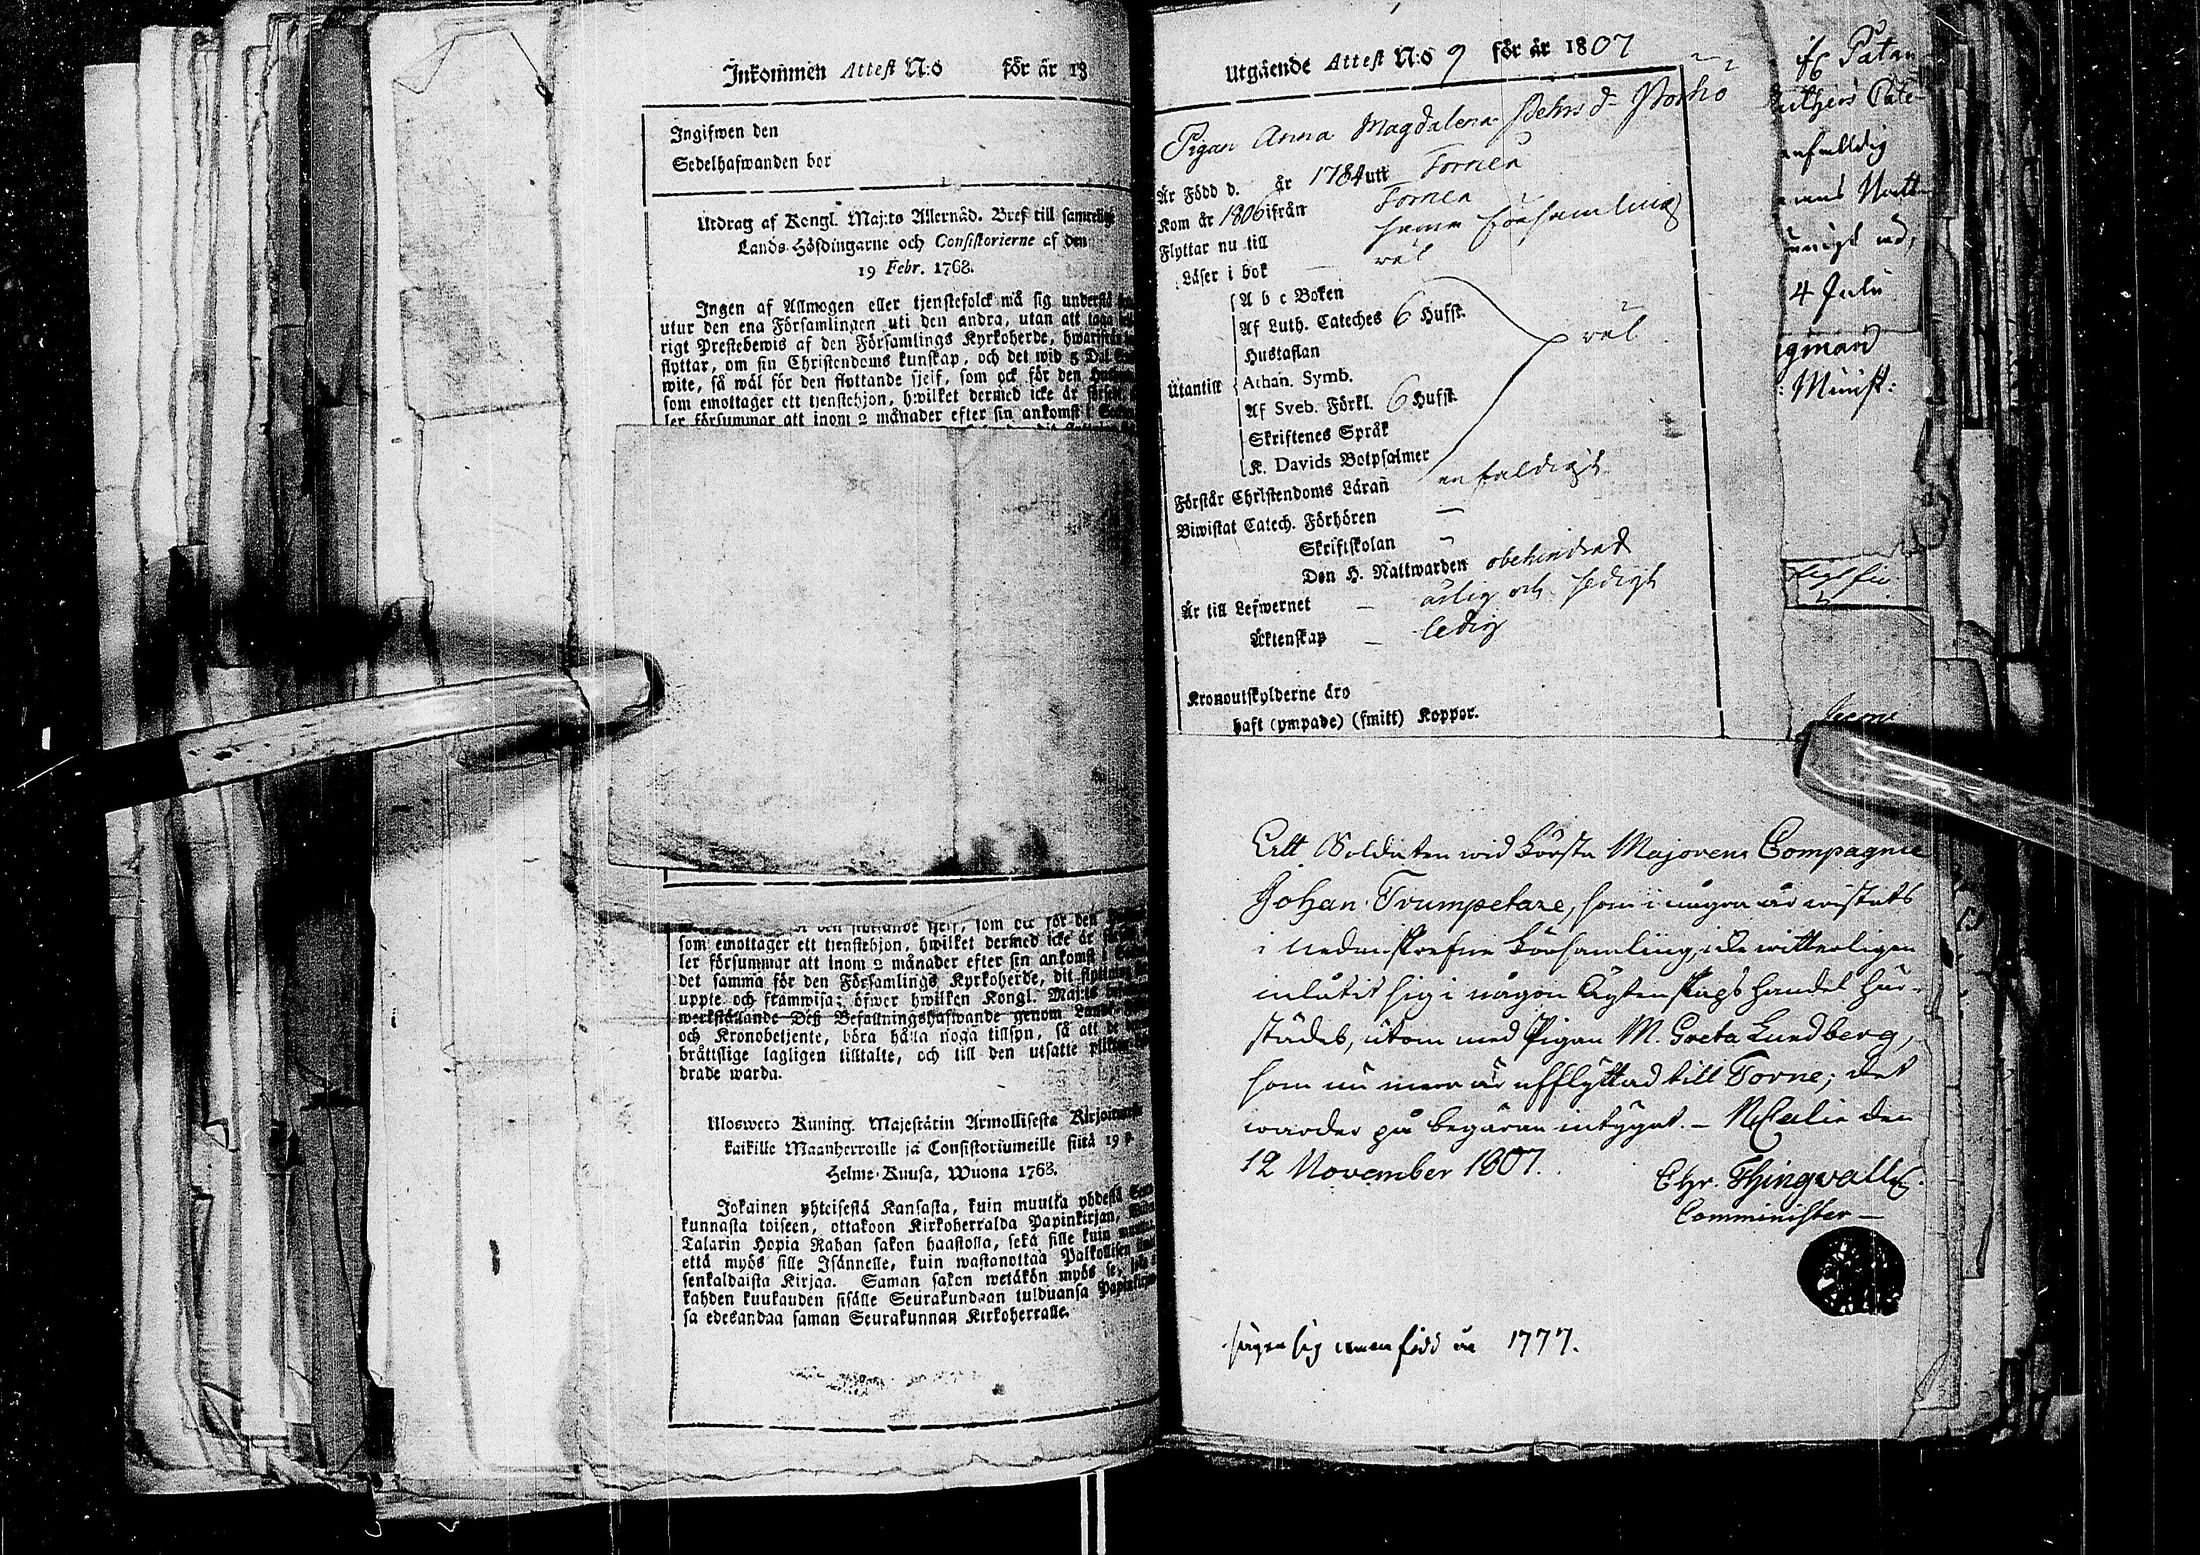 Inkommen Attest N:o för år 18
Ingifwen den
Sedelhafwanden bor
Utdrag af Kongl. Maj:ts Allernåd. Bref till samtelige
Lands-Höfdingarne och Consistorierne af den
19 Febr. 1768.
Ingen af Allmogen eller tjenstefolck må sig understå
utur den ena Församlingen uti den andra, utan att taga
rigt Prestebewis af den Församlings Kyrkoherde, hwarifrån
flyttar, om sin Christendoms kunskap, och det wid 5 Dal.
wite, så wäl för den flyttande sjelf, som ock för den
som emottager ett tjenstehjon, hwilket dermed icke är försedt
ler försummar att inom 2 månader efter sin ankomst i
som emottager ett tjenstehjon, hwilket dermed icke är
ler försummar att inom 2 månader efter sin ankomst i
det samma för den Församlings Kyrkoherde, dit flyttning
uppte och framwisa; öfwer hwilken Kongl. Maj:ts
werkställande Deß Befallningshafwande genom
och Kronobetjente, böra hålla noga tillsyn, så att de
bråttslige lagligen tilltalte, och till den utsatte plikten
drade warda.
Uloswero Kuning. Majestätin Armollisesta Kirjoituxesta
kaikille Maanherroille ja Consistoriumeille siitä 19 p.
Helme-Kuusa, Wuona 1768.
Jokainen yhteisestä Kansasta, kuin muutta yhdestä
kunnasta toiseen, ottakoon Kirkoherralda Papinkirjan,
Talarin Hopia Rahan sakon haastolla, sekä sille kuin
että myös sille Isännelle, kuin wastanottaa Palkollisen
senkaldaista Kirjaa. Saman sakon wetäkön myös se,
kahden kuukauden sisälle Seurakundaan tulduansa
sa edesandaa saman Seurakunnan Kirkoherralle.
Utgående Attest N:o 9 för år 1807
Pigan Anna Magdalena Pehrsd:
Är Född d. år 1784 uti Torneå
Kom år 1806 ifrån Torneå
Flyttar nu till samma församling
Läser i bok – väl
A b c Boken
Af Luth. Cateches 6 Hufst.
Hustaflan
väl
Utantill
Athan. Symb.
Af Sveb. Förkl. 6 Hufst.
Skriftenes Språk
K. Davids Botpsalmer
Förstår Christendoms Läran enfaldigt
Biwistat Catech. Förhören –
Skriftskolan
Den H. Nattwarden obehindrad
Är till Lefwernet – ärlig och sedigt
Äktenskap – ledig
Kronoutskylderne äro
haft (ympade) (smitt) Koppor.
Att Soldaten wid Första Majorens Compagnie
Johan Trumpetare, som i några år wistats
i nedanskrefne Församling, icke witterligen
inlåtit sig i någon Ägtenskaps handel här-
städes, utom med Pigan M. Greta Lundberg,
som nu mera är afflyttad till Torne; det
warder på begäran intygat. – den
12 November 1807.
Chr. Thingvall
Comminister –
säger sig wara född år 1777.
4 Julii
Minist: